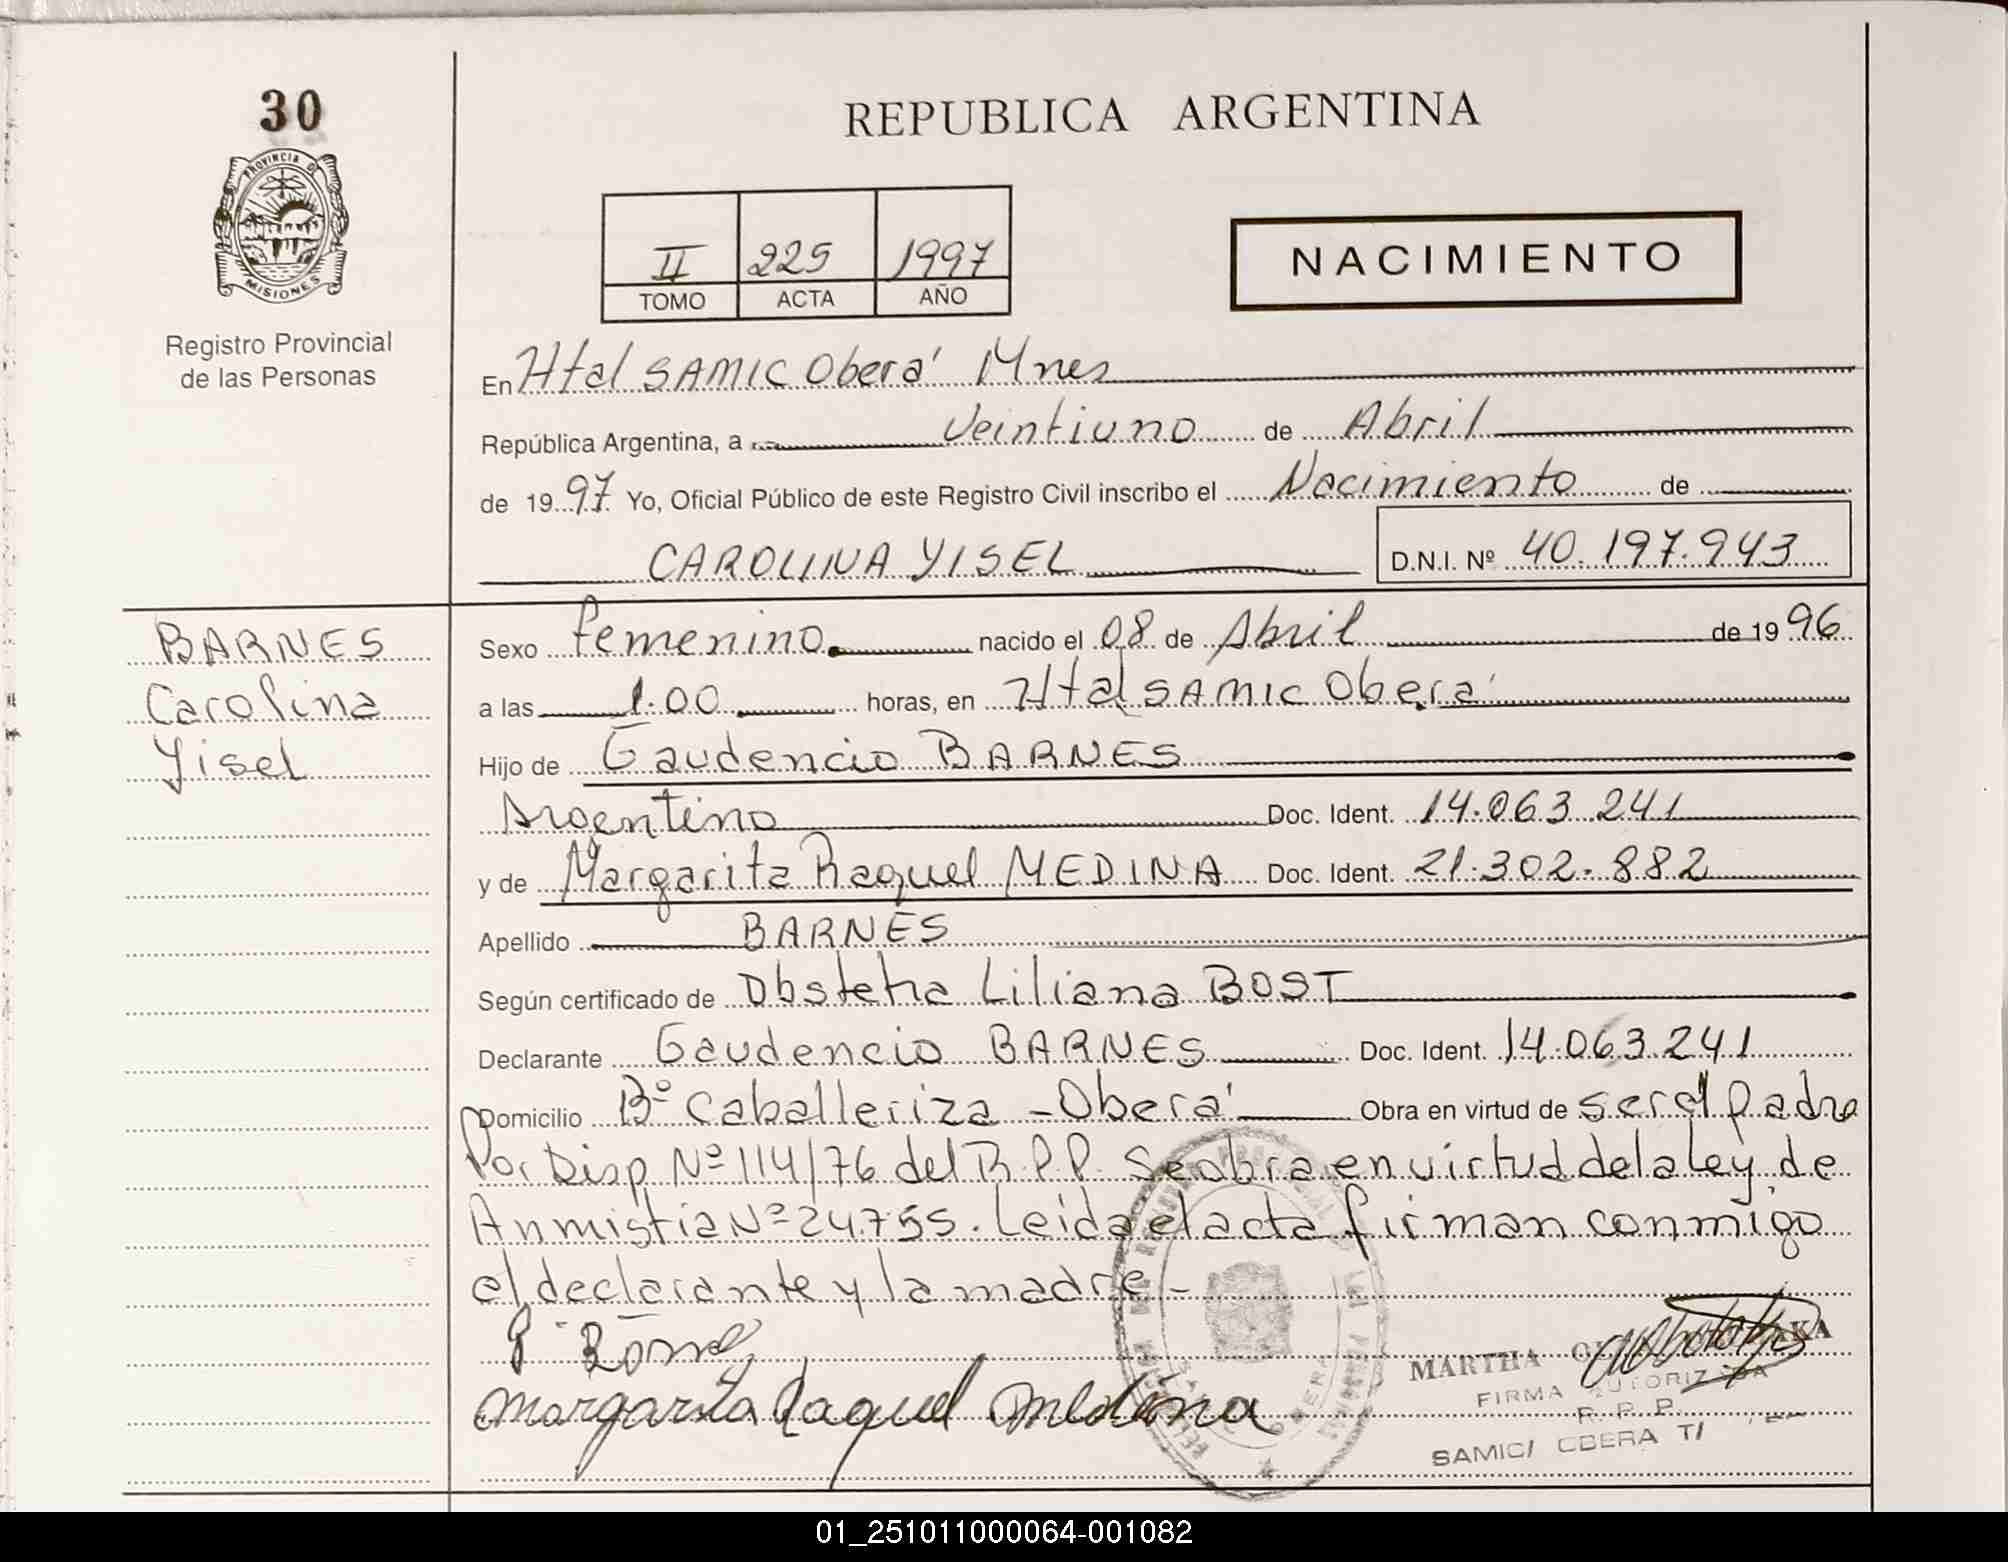 30
PROVINCIA D
MISIONES
Registro Provincial
de las Personas
REPUBLICA ARGENTINA
II 225 1997
TOMO ACTA AÑO
NACIMIENTO
En Htal SAMIC Oberá Mnes
República Argentina, a Veintiuno de Abril
de 19 97 Yo, Oficial Público de este Registro Civil inscribo el Nacimiento de
CAROLINA YISEL D.N.I. Nº 40.197.943
BARNES
Carolina
Yisel
Sexo femenino nacido el 08 de Abril de 19 96
a las 1.00 horas, en Htal SAMIC Oberá
Hijo de Gaudencio BARNES
Argentino Doc. Ident. 14.063.241
y de Margarita Raquel MEDINA Doc. Ident. 21.302.882
Apellido BARNES
Según certificado de Obstetra Liliana BOST
Declarante Gaudencio BARNES Doc. Ident. 14.063.241
Domicilio Bº Caballeriza - Oberá Obra en virtud de ser el padre
Por Disp Nº 114/76 del R.P.P. Se obra en virtud de la Ley de
Anmistia Nº 24.755. Leída el acta firman conmigo
el declarante y la madre -
Margarita Raquel Medina
MARTHA
FIRMA AUTORIZADA
R. P. P.
SAMIC/ OBERA
01_251011000064-001082